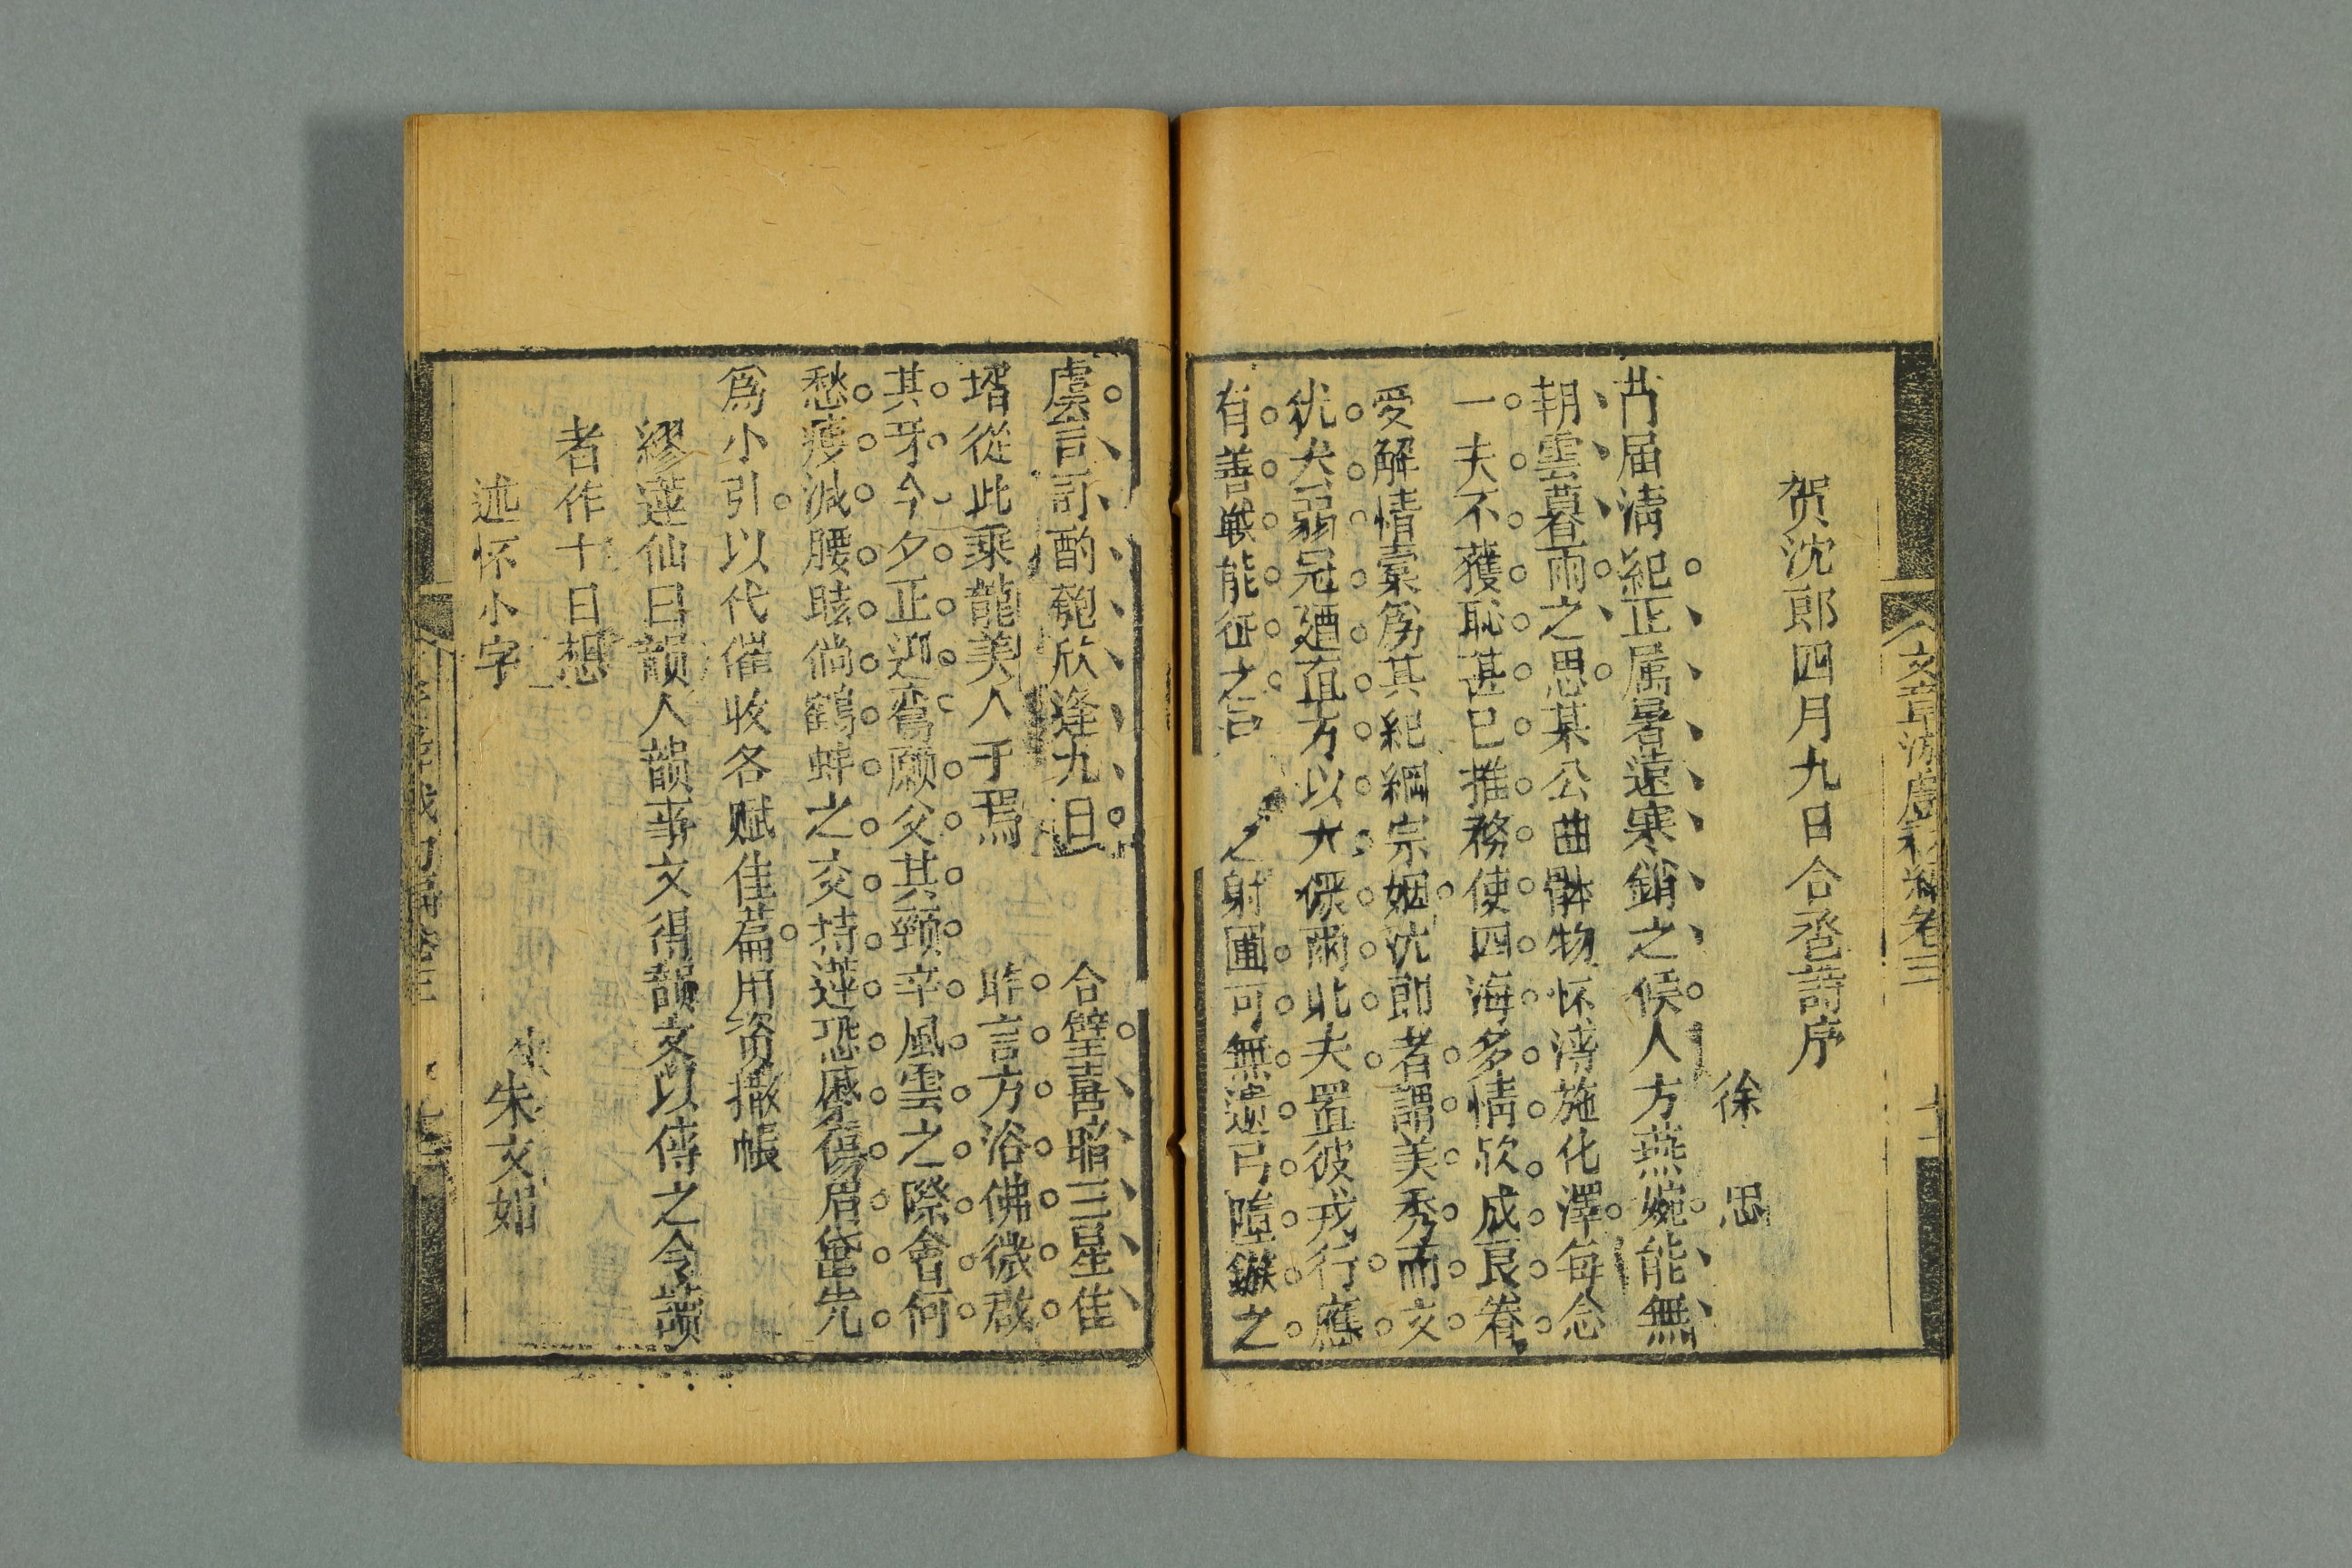 贺沈郎四月九日合卺詩序
徐　思
届清和正属暑遠寒銷之候人方燕婉能無
朝雲暮雨之思某公曲體物怀溥施化澤每念
一夫不獲恥甚已推務使四海多情欣成良眷
爰解情囊爲其紀綱宗姻沈郎者謂美秀而文
犹夫弱冠廼直方以大僕爾此夫置彼戎行應
有善戰能征之 之射圃可無遺弓隨鏃之
虞 酌匏欣逢九日 合璧喜暗三星佳
壻從此乘龍美人于焉 昨言方浴佛微啟
其牙今夕正迎鸞願父其頸辛風雲之際會何
愁瘦減腰眩倘鶴蚌之交持遊恐屢傷眉黛先
爲小引以代催收各赋佳篇用资撒帳
繆蓮仙曰韻人韻事文得韻友以傳之令讀
者作十日想
述怀小字
朱文娟